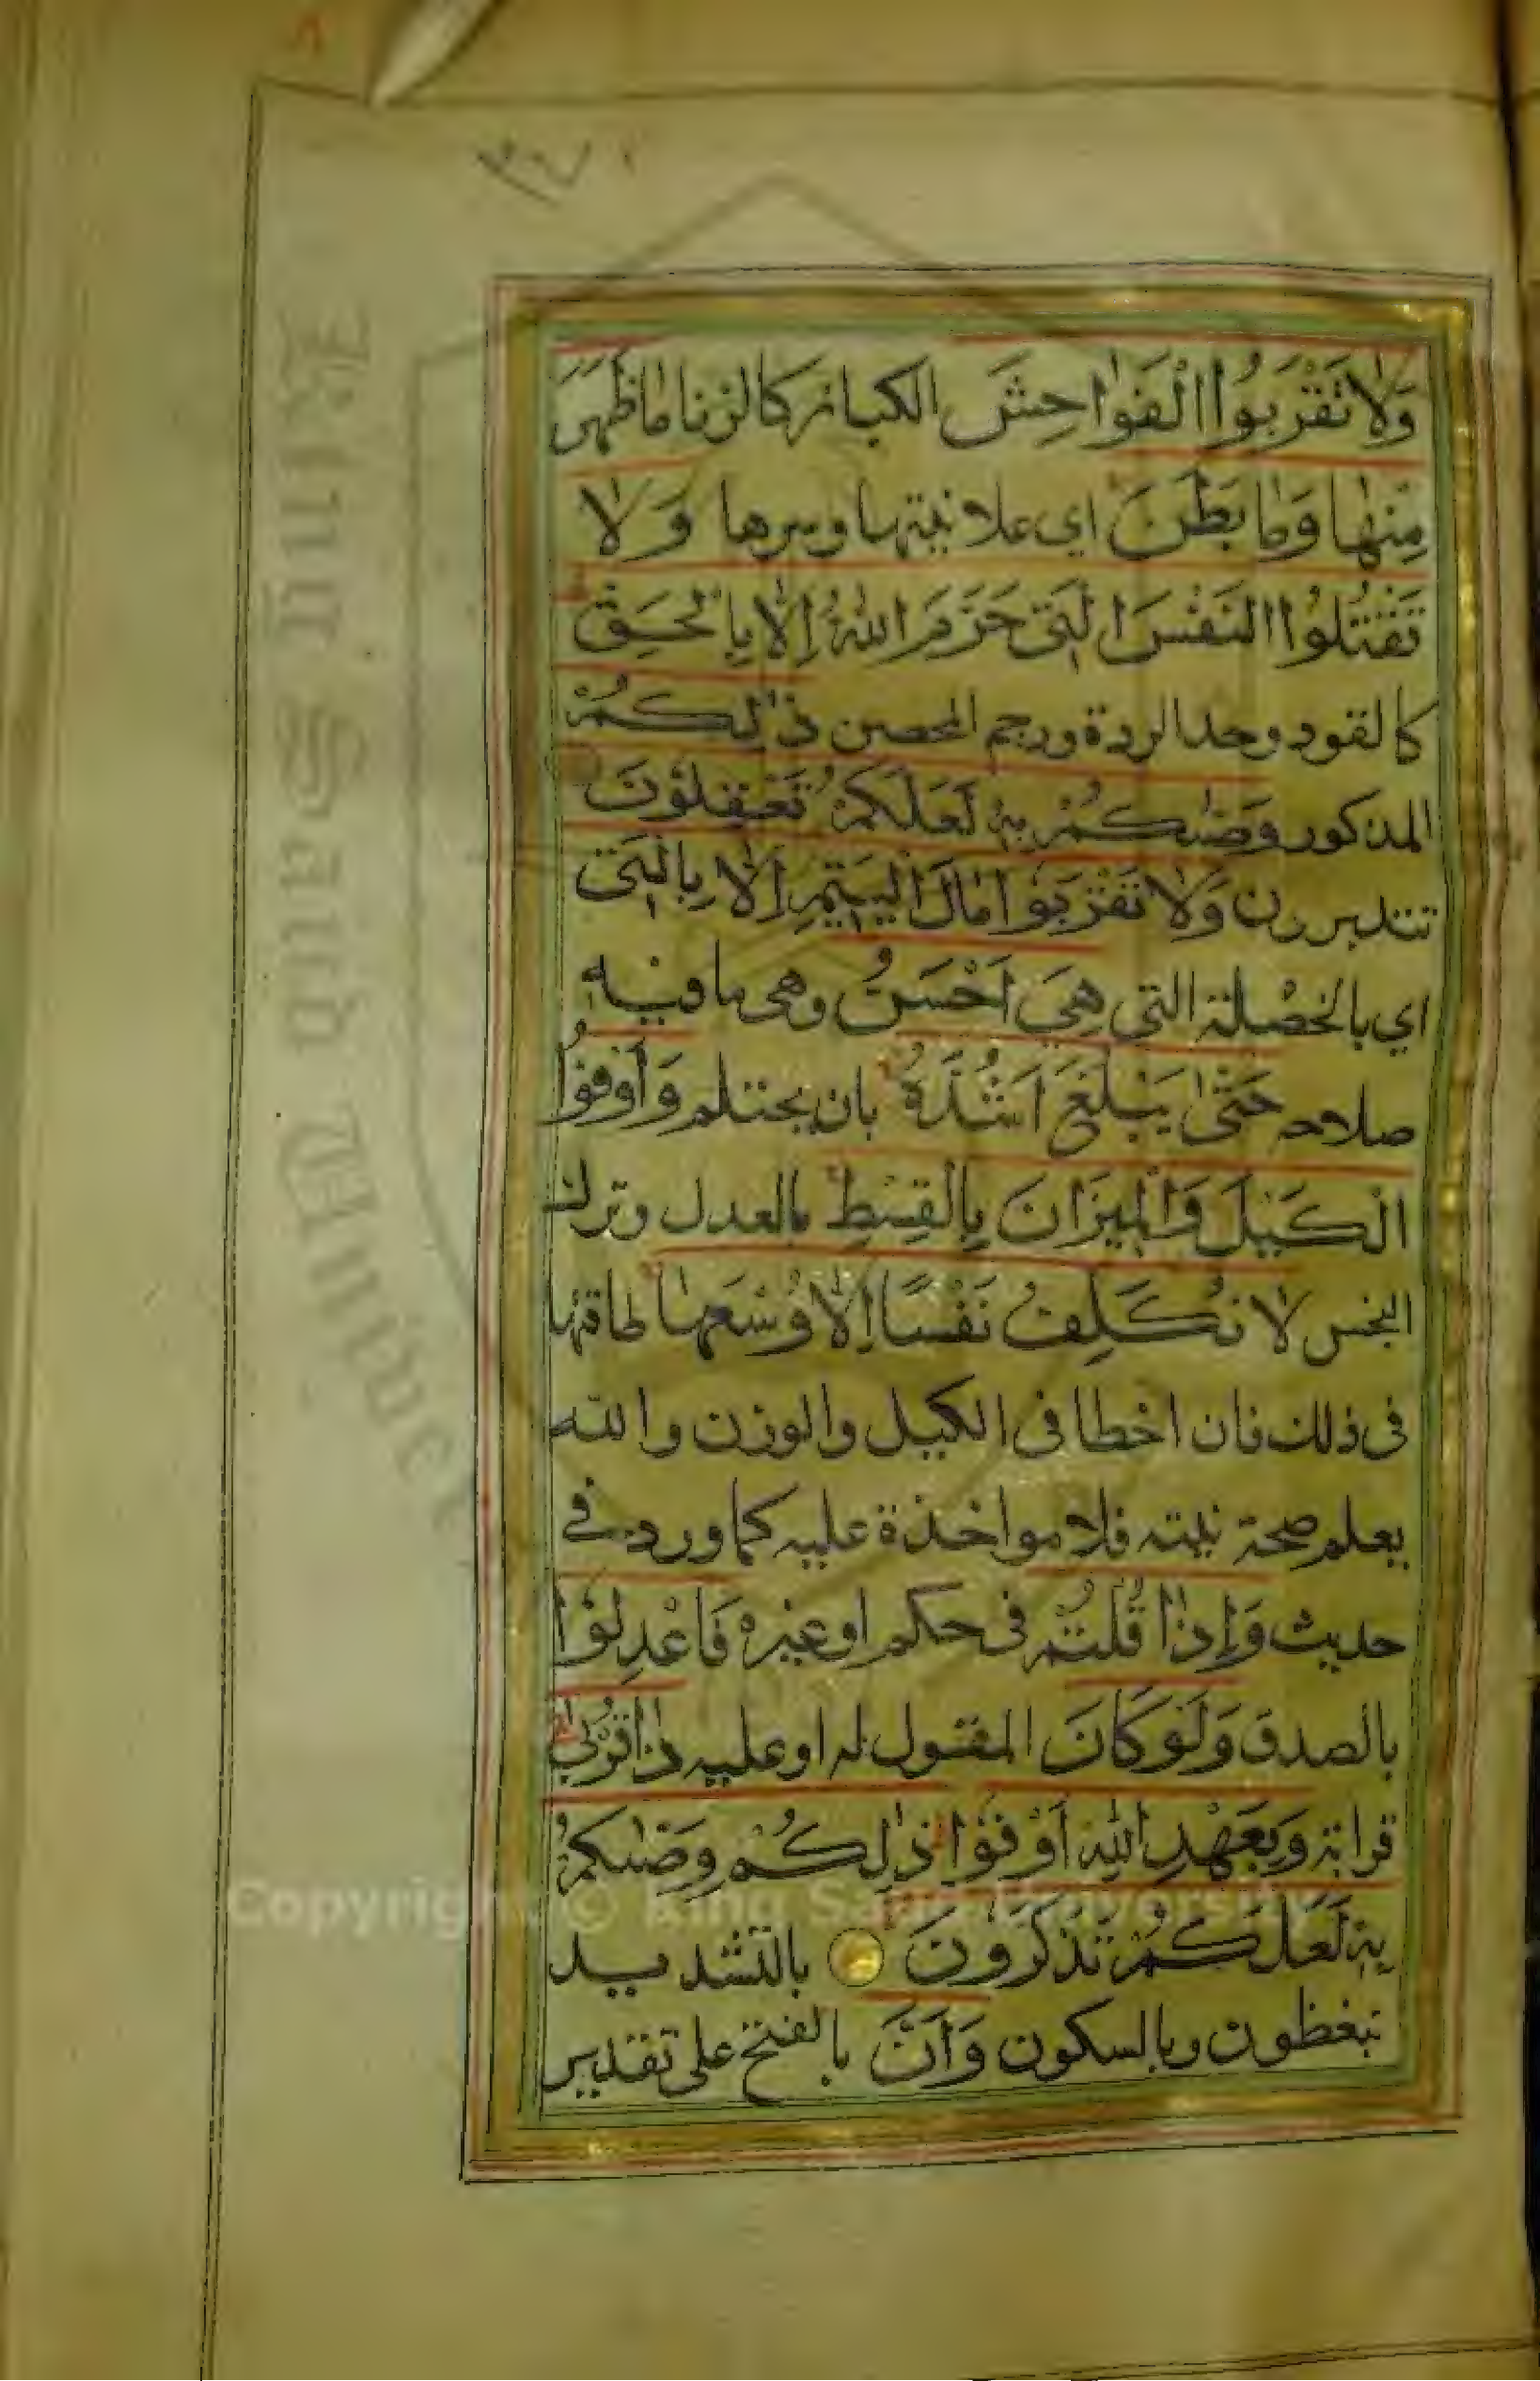 وَلَا تَقْرَبُوا الْفَوَاحِشَ الكبائر كالزنا مَا ظَهَرَ
مِنْهَا وَمَا بَطَنَ اي علانيتها وسرها وَلَا
تَقْتُلُوا النَّفْسَ الَّتِي حَرَّمَ اللهُ إِلَّا بِالْحَقِّ
كالقود وحد الردة ورجم المحصن ذٰلِكُمْ
المذكور وَصّٰىكُمْ بِهِ لَعَلَّكُمْ تَعْقِلُونَ
تتدبرون وَلَا تَقْرَبُوا مَالَ الْيَتِيمِ إِلَّا بِالَّتِي
اي بالخصلة التي هِيَ أَحْسَنُ وهي ما فيه
صلاحه حَتّٰى يَبْلُغَ أَشُدَّهُ بان يحتلم وَأَوْفُوا
الْكَيْلَ وَالْمِيزَانَ بِالْقِسْطِ بالعدل وترك
البخس لَا نُكَلِّفُ نَفْسًا إِلَّا وُسْعَهَا طاقتها
في ذلك فان اخطا في الكيل والوزن والله
يعلم صحة نيته فلا مواخذة عليه كما ورد في
حديث وَإِذَا قُلْتُمْ في حكم او غيره فَاعْدِلُوا
بالصدق وَلَوْ كَانَ المقول له او عليه ذَا قُرْبٰى
قرابة وَبِعَهْدِ اللهِ أَوْفُوا ذٰلِكُمْ وَصّٰىكُمْ
بِهِ لَعَلَّكُمْ تَذَكَّرُونَ بالتشديد
تتعظون وبالسكون وَأَنَّ بالفتح على تقدير
King Saud Univer
Copyright © King Saud University